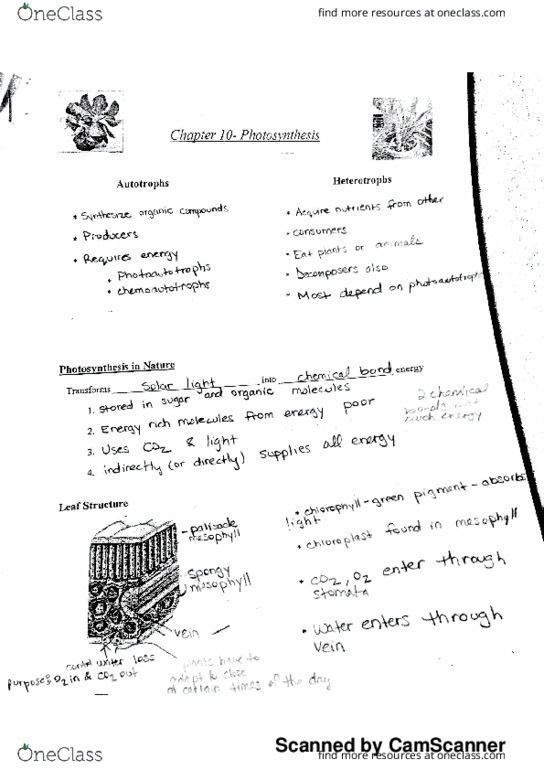 OneClass
find more resources at oneclass.com
Chapter 10- Photosynthesis
Autotrophs
• Synthesize organic compounds
• Producers
• Requires energy
• Photoautotrophs
• chemoautotrophs
Heterotrophs
• Acquire nutrients from other
• consumers
• Eat plants or animals
• Decomposers also
• Most depend on photoautotrophs
Photosynthesis in Nature
Transforms solar light into chemical bond energy
1. stored in sugar and organic molecules
2. Energy rich molecules from energy poor
3. Uses CO2 & light
4. indirectly (or directly) supplies all energy
2 chemical
bonds
energy
Leaf Structure
- palisade
mesophyll
spongy
mesophyll
vein
control water loss
purpose: O2 in & CO2 out
plants have to
adapt & close
at certain times of the day
• chlorophyll - green pigment - absorbs
light
• chloroplast found in mesophyll
• CO2, O2 enter through
stomata
• Water enters through
vein
Scanned by CamScanner
OneClass
find more resources at oneclass.com